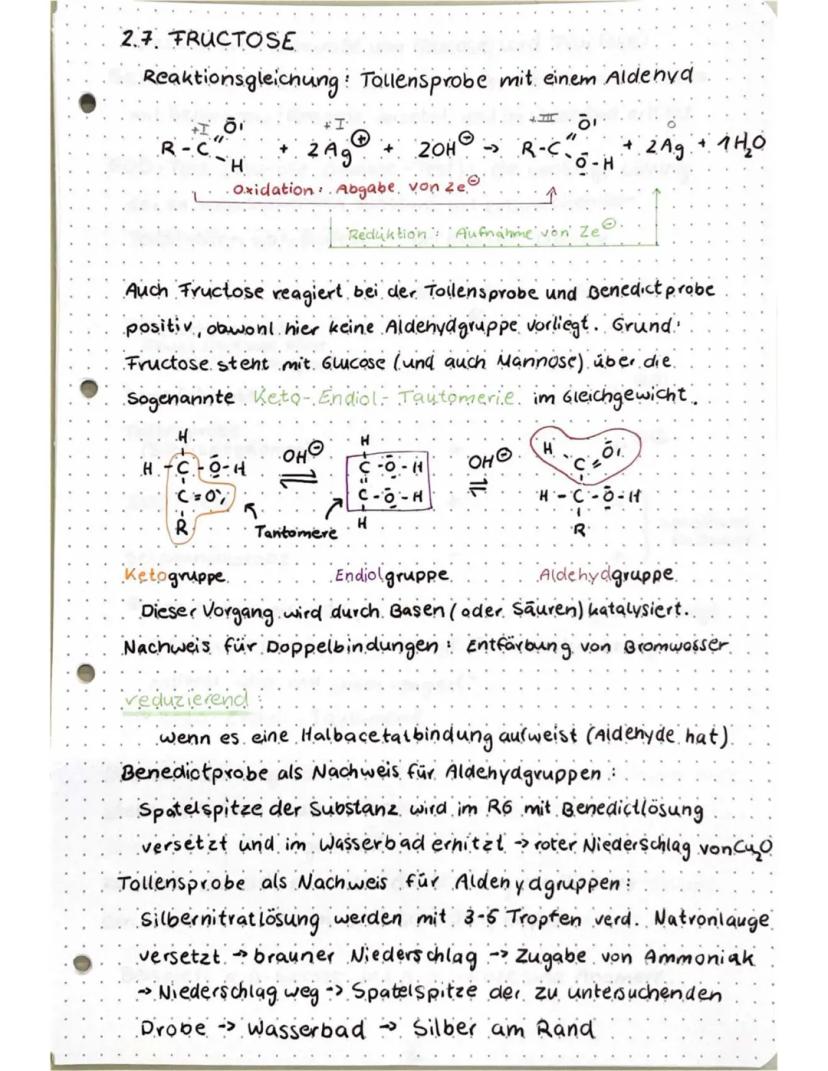 2.7. FRUCTOSE
Reaktionsgleichung: Tollensprobe mit einem Aldehyd
+I O +I +III O 0
R-C-H + 2Ag⊕ + 2OH⊖ → R-C-O-H + 2Ag + 1H₂O
Oxidation: Abgabe von 2e⊖
Reduktion: Aufnahme von 2e⊖
Auch Fructose reagiert bei der Tollensprobe und Benedictprobe
positiv, obwohl hier keine Aldehydgruppe vorliegt. Grund:
Fructose steht mit Glucose (und auch Mannose) über die
sogenannte Keto-Endiol-Tautomerie im Gleichgewicht.
H H H O
H-C-O-H OH⊖ ⇌ C-O-H OH⊖ ⇌ C
C=O C-O-H H-C-O-H
R Tautomere H R
Ketogruppe Endiolgruppe Aldehydgruppe
Dieser Vorgang wird durch Basen (oder Säuren) katalysiert.
Nachweis für Doppelbindungen: Entfärbung von Bromwasser
reduzierend:
wenn es eine Halbacetalbindung aufweist (Aldehyde hat)
Benedictprobe als Nachweis für Aldehydgruppen:
Spatelspitze der Substanz wird im RG mit Benedictlösung
versetzt und im Wasserbad erhitzt → roter Niederschlag von Cu₂O
Tollensprobe als Nachweis für Aldehydgruppen:
Silbernitratlösung werden mit 3-5 Tropfen verd. Natronlauge
versetzt → brauner Niederschlag → Zugabe von Ammoniak
→ Niederschlag weg → Spatelspitze der zu untersuchenden
Probe → Wasserbad → Silber am Rand